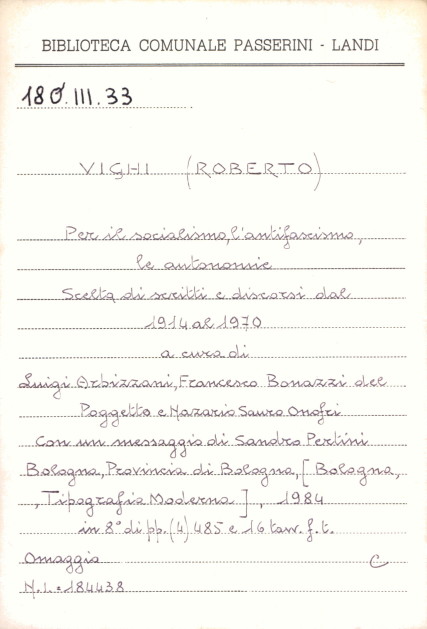 BIBLIOTECA COMUNALE PASSERINI - LANDI
180.III.33
VIGHI (ROBERTO)
Per il socialismo, l'antifascismo,
le autonomie
Scelta di scritti e discorsi dal
1914 al 1970
a cura di
Luigi Arbizzani, Francesco Bonazzi del
Poggetto e Nazario Sauro Onofri
Con un messaggio di Sandro Pertini
Bologna, Provincia di Bologna, [Bologna,
, Tipografia Moderna], 1984
in 8° di pp. (4) 485 e 16 tav. f. t.
Omaggio C
N.I.: 184438